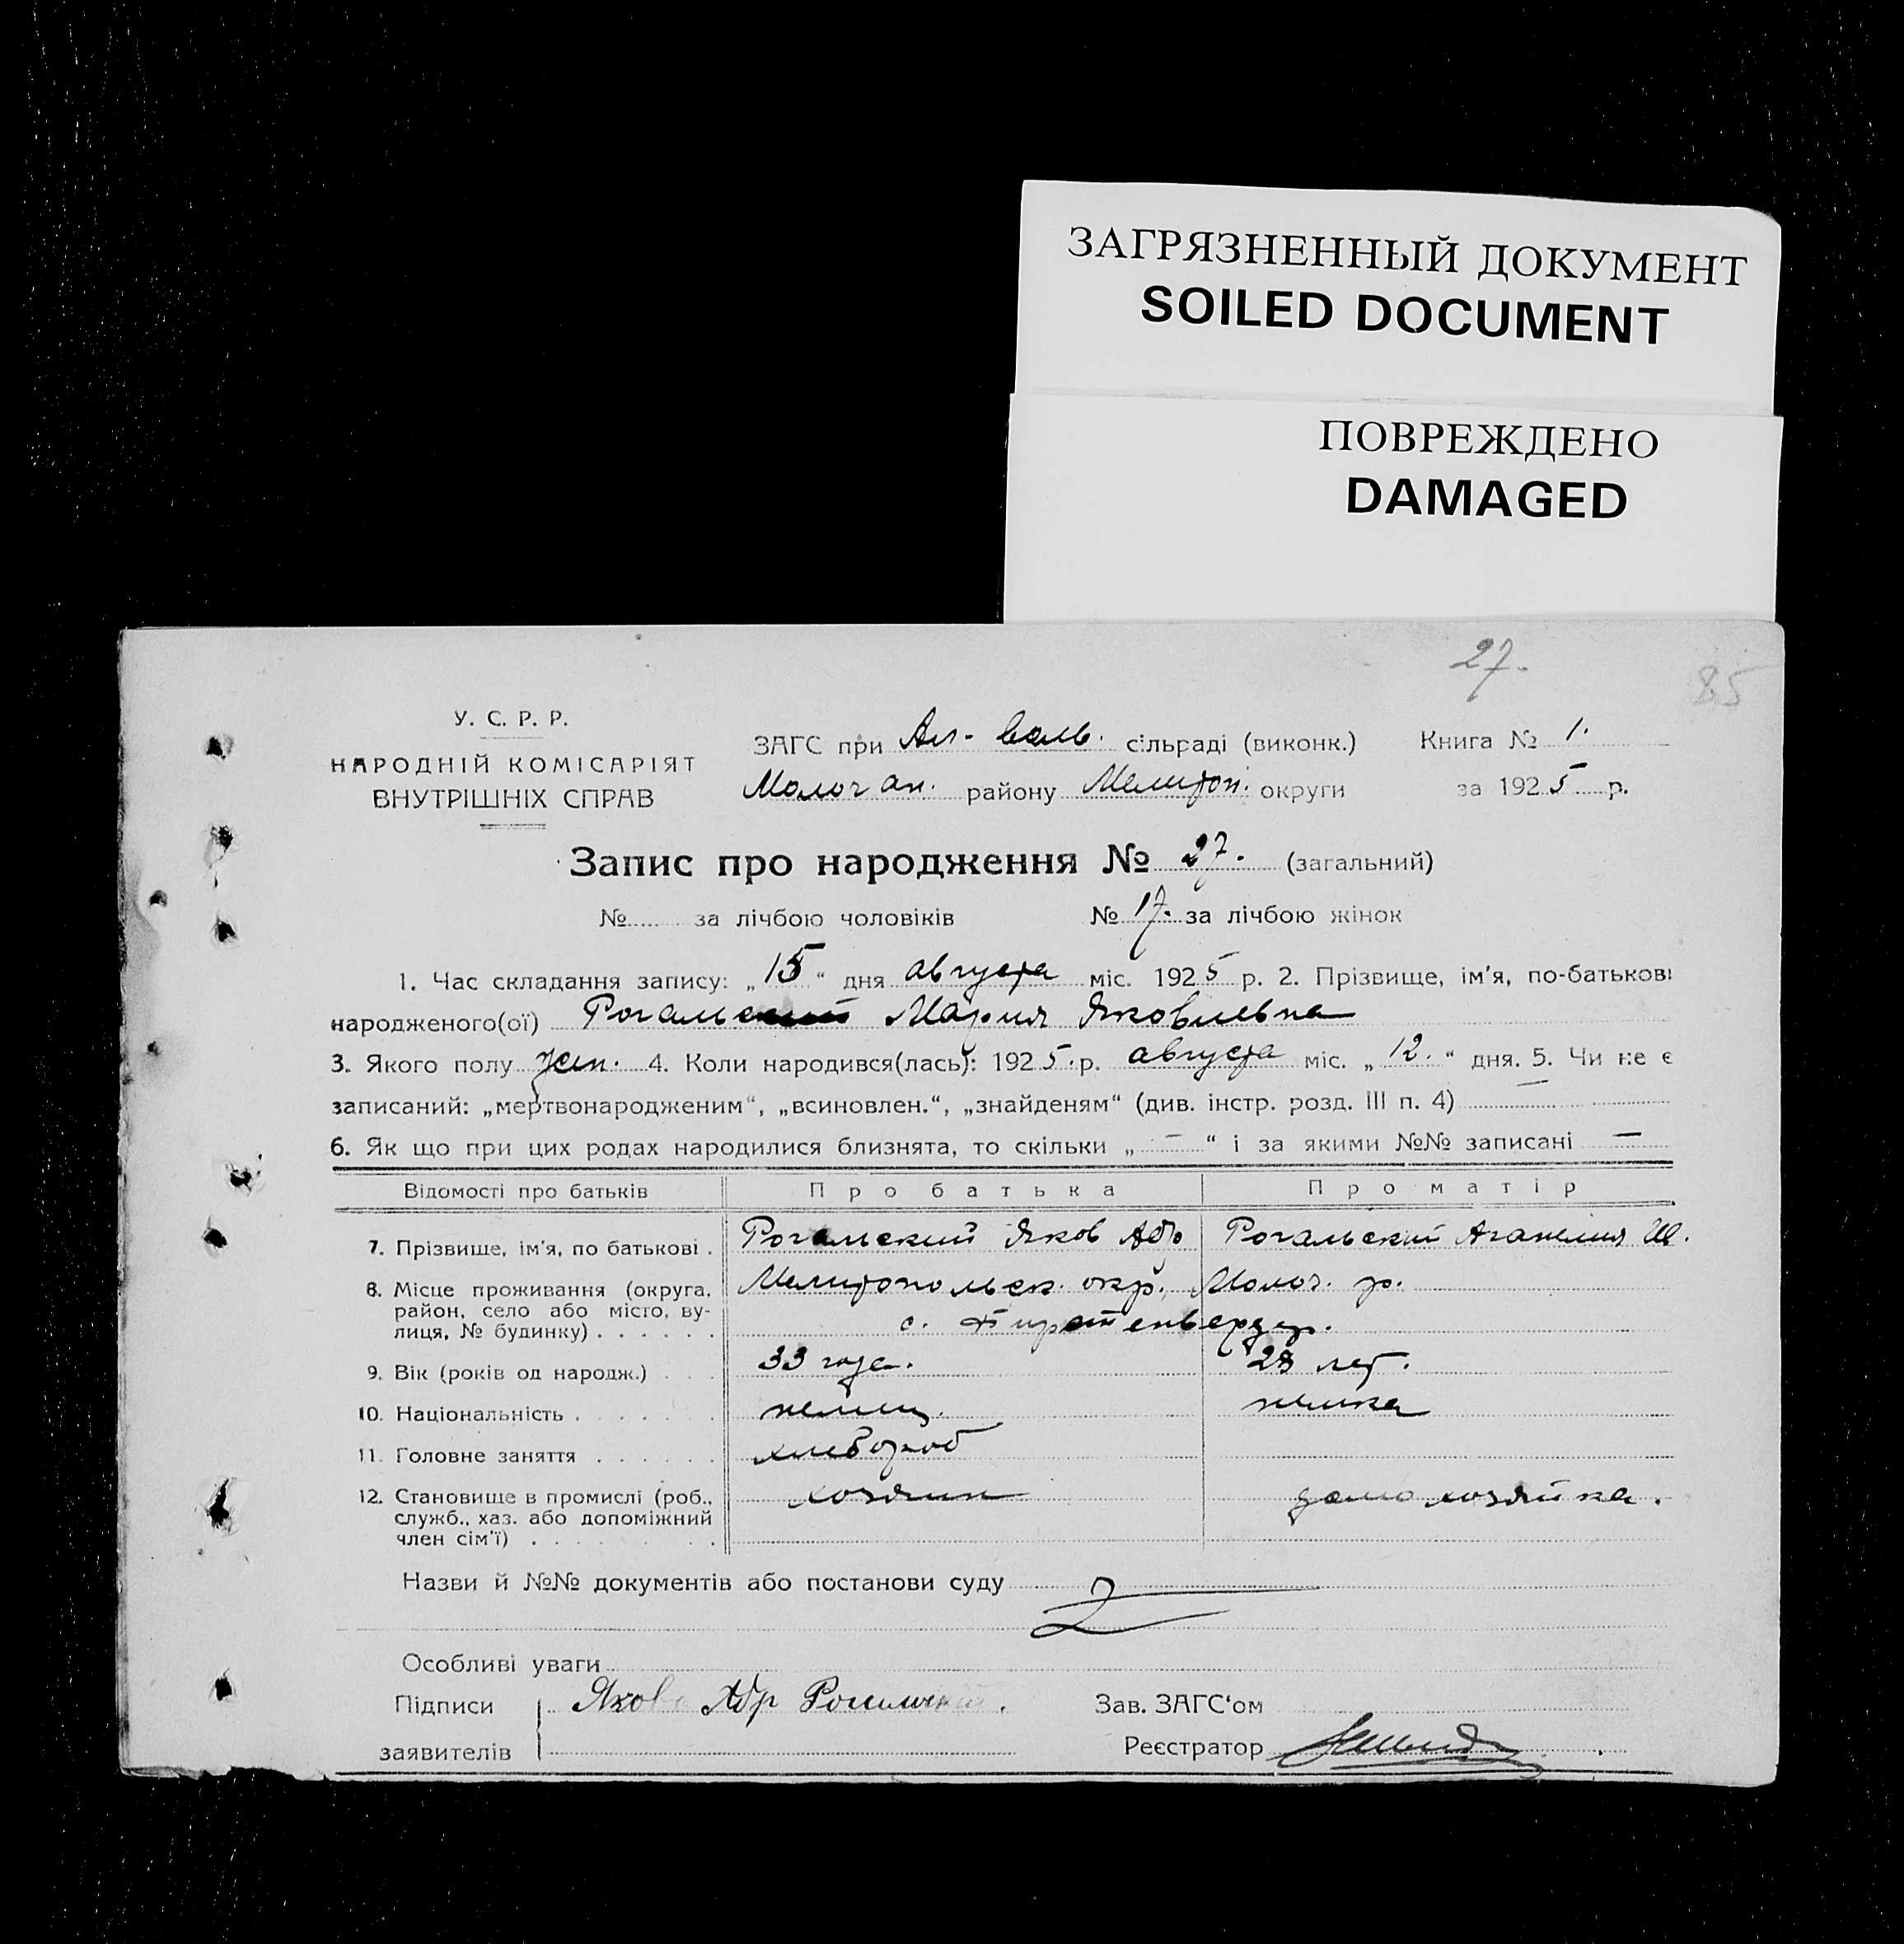 ЗАГРЯЗНЕННЫЙ ДОКУМЕНТ
SOILED DOCUMENT
ПОВРЕЖДЕНО
DAMAGED
27.
85
У. С. Р. Р.
НАРОДНІЙ КОМІСАРІЯТ
ВНУТРІШНІХ СПРАВ
ЗАГС при Ал- вальд. сільраді (виконк.) Книга № 1.
Молочан. району Мелитоп. округи за 1925 р.
Запис про народження № 27. (загальний)
№ за лічбою чоловіків № 17. за лічбою жінок
1. Час складання запису: „15“ дня августа міс. 1925 р. 2. Прізвище, ім'я, по-батькові
народженого(ої) Рогальский Мария Яковлевна
3. Якого полу жен. 4. Коли народився(лась): 1925. р. августа міс. „12.“ дня. 5. Чи не є
записаний: „мертвонародженим“, „всиновлен.“, „знайденям“ (див. інстр. розд. III п. 4) —
6. Як що при цих родах народилися близнята, то скільки „—“ і за якими №№ записані —
Відомості про батьків Про батька Про матір
7. Прізвище, ім'я, по батькові . Рогальский Яков Абр Рогальский Аганелия
8. Місце проживання (округа, район, село або місто, вулиця, № будинку) . . . . . . Мелитопольск. окр. Молоч. р.
с. Фирстенвердер.
9. Вік (років од народж.) . . . 33 года. 28 лет.
10. Національність . . . . . . немец. немка
11. Головне заняття . . . . . . хлебороб
12. Становище в промислі (роб., служб., хаз. або допоміжний член сім'ї) . . . . . хозяин домохозяйка.
Назви й №№ документів або постанови суду
Особливі уваги
Підписи Яков Абр Рогальский. Зав. ЗАГС'ом
заявителів Реєстратор